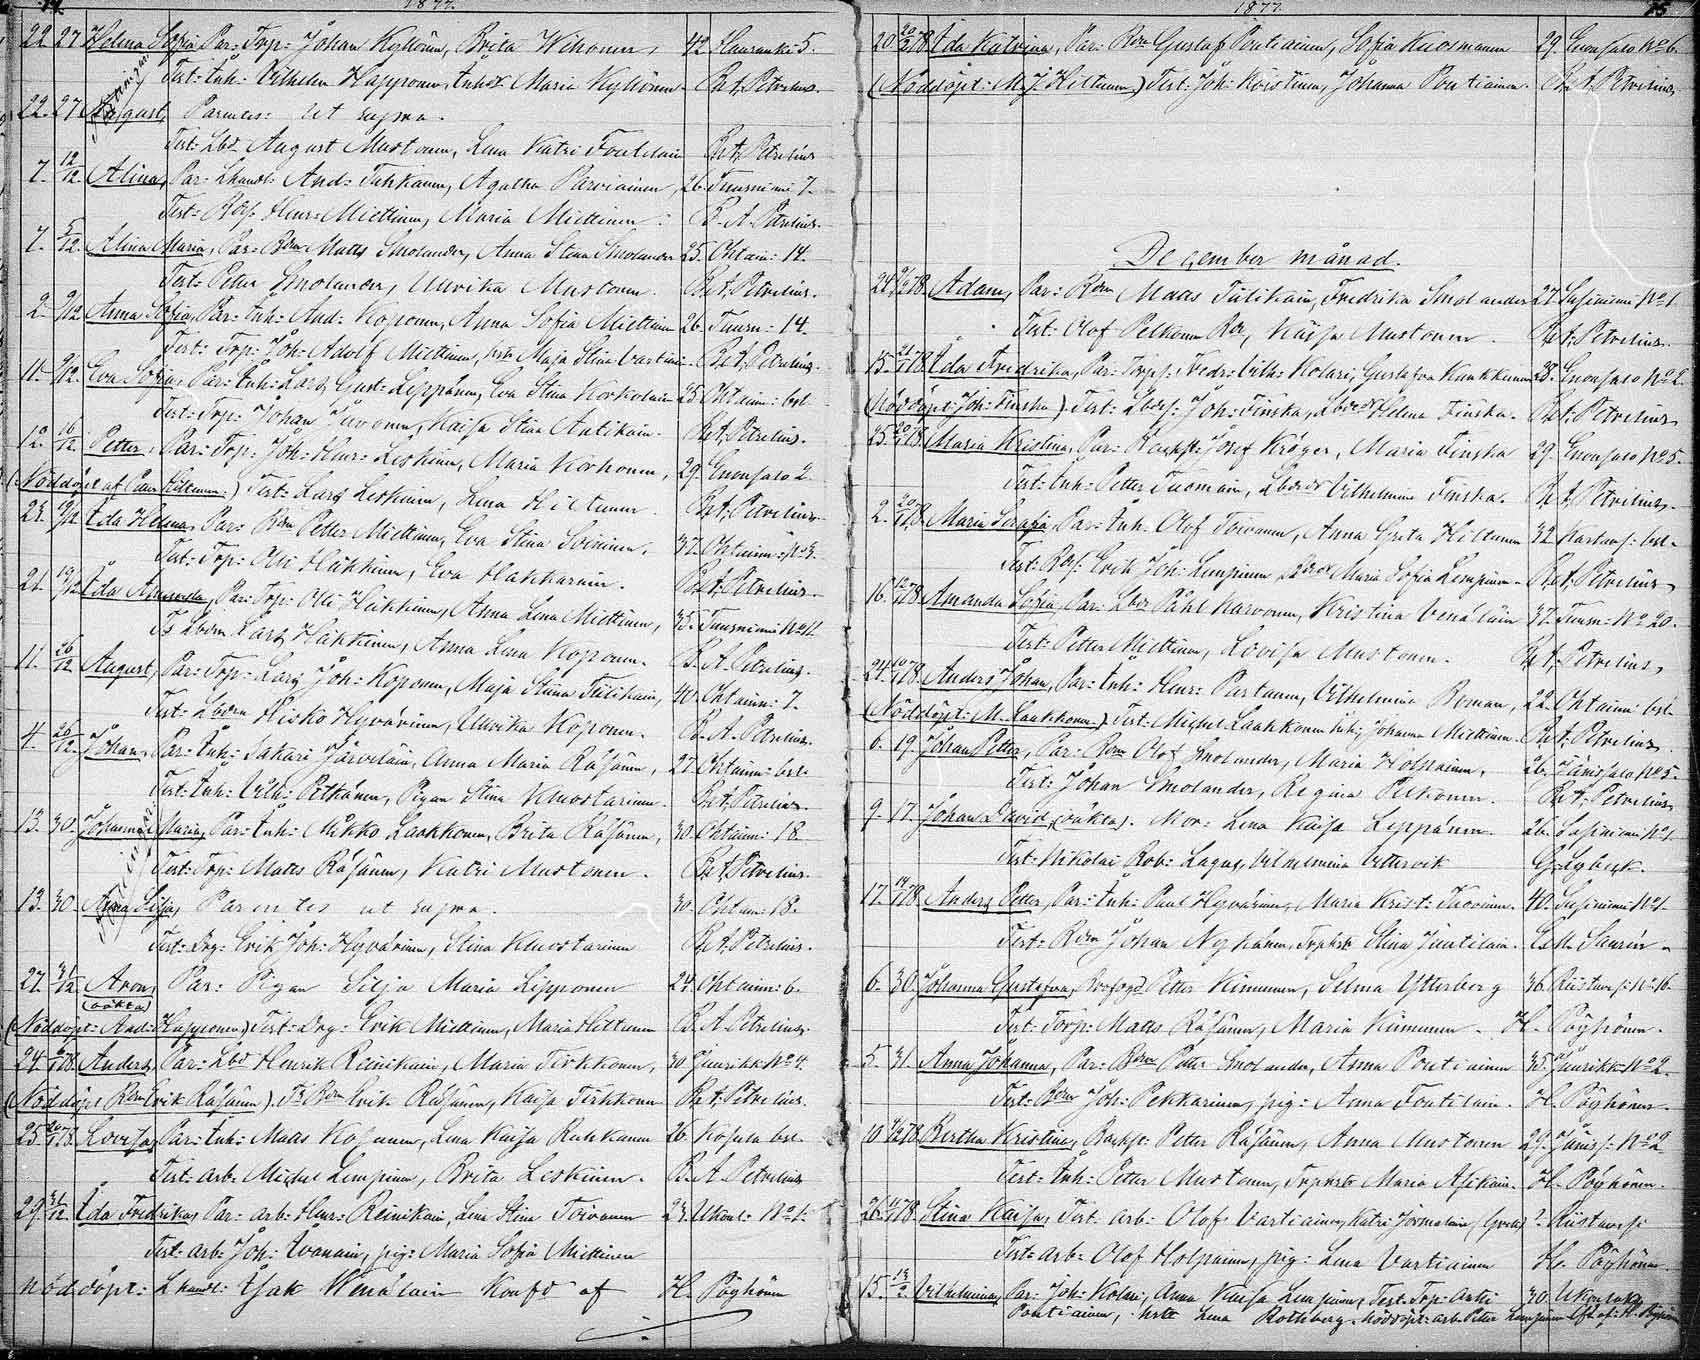 14. 1877.
22 27 Helena Sofia Par: Trp: Johan Kyllönen, Brita Wihonen, 42. Haurankis 5.
Test: Inh: Vilhelm Happonen, Inhdr Maria Kyllönen. B.A. Petrelius.
22. 27 August, Parentes: ut supra.
Test: Lbd August Mustonen, Lena Katri Foutilain B.A. Petrelius
7. 12/12. Alina, Par: Lhandl: And: Tuhkanen, Agatha Parviainen, 26. Tuusniemi 7.
Test: Rdf. Henr: Miettinen, Maria Miettinen. B. A. Petrelius.
7. 5/12. Alina Maria, Par: Bdn Matts Smolander, Anna Stina Smolander 25. Ohtain: 14.
Test: Petter Smolander, Ulrika Mustonen. B.A. Petrelius.
2. 9/12 Anna Sofia, Par: Inh: And: Koponen, Anna Sofia Miettinen 26. Tuusn: 14.
Test: Trp: Joh: Adolf Miettinen, hst: Maja Stina Vartiain. B.A. Petrelius.
11. 9/12. Eva Sofia, Par: Inh: Lars Gust: Leppänen, Eva Stina Korkolain 25. Ohtaim: bst
Test: Trp: Johan Juvonen, Kaisa Stina Antikain. B.A. Petrelius.
12. 16/12 Petter, Par: Trp: Joh: Henr: Leskinen, Maria Korhonen, 29. Enonsalo 2.
(Nöddöpt af Hiltunen.) Test: Lars Leskinen, Lena Hiltunen. B.A. Petrelius.
Ida Helena, Par: Bdn Petter Miettinen, Eva Stina Soininen. 37. Ohtaim: No 3.
Test: Trp: Olli Häkkinen, Eva Hakkarain. B.A. Petrelius.
21. 19/12 Ida Amanda, Par: Trp: Olli Häkkinen, Anna Lena Miettinen, 35. Tuusniemi No 11.
Ts Lbdn Lars Häkkinen, Anna Lena Koponen. B. A. Petrelius.
11. 26/12 August, Par: Trp: Lars Joh: Koponen, Maja Stina Tiilikain, 40. Ohtaim: 7.
Test: Lbdn Hisko Hyvärinen, Ulrika Koponen. B. A. Petrelius.
4. 26/12. Johan, Par: Inh: Sakari Järveläin, Anna Maria Räsänen, 27. Ohtaim: bst.
Test: Inh: Vilh: Pitkänen, Pigan Stina Knuutarinen. B.A. Petrelius.
13. 30. Johanna Maria, Par: Inh: Mikko Laakkonen, Brita Räsänen, 30. Ohtaim: 18.
Test: Trp: Matts Räsänen, Katri Mustonen. B.A. Petrelius.
13. 30. Anna Silja, Parentes ut supra. 30. Ohtaim: 18.
Test: Drg: Erik Joh: Hyvärinen, Stina Knuutarinen B.A. Petrelius.
27. 31/12. Aron, Par: Pigan Silja Maria Lipponen 24. Ohtaim: 6.
(oäkta)
(Nöddöpt: And: Happonen) Test: Drg: Erik Miettinen, Maria Hiltunen B. A. Petrelius.
24. Anders, Par: Lbd Henrik Reinikain, Maria Tirkkonen, 30 Juurikk: No 4.
(Nöddöpt Bdn Erik Räsänen). Ts Bdn Erik Räsänen, Kaisa Tirkkonen B.A. Petrelius.
25. Lovisa, Par: Inh: Matts Kosunen, Lena Kaisa Ruhkanen 26. Kosula bst.
Test: arb: Michel Lempinen, Brita Leskinen. B. A. Petrelius
29. 31/12. Ida Fredrika, Par: arb: Henr: Reinikain, Lena Stina Toivanen 23. Ukonl: No 1.
Test: arb: Joh: Ivanain, pig: Maria Sofia Miettinen
Nöddöpt: Lhandl: Isak Wenäläin Konfd af H. Pöyhönen
1877. 15
20. Ida Katrina, Par: Bdn Gustaf Pontiainen, Sofia Kuosmanen 29. Enonsalo No 6.
(Nöddöpt: M. J. Hiltunen) Test: Joh: Ristinen, Johanna Pontiainen. B.A. Petrelius,
December månad.
24. Adam, Par: Bdn Matts Tiilikain, Fredrika Smolander 27. Susiniemi No 1.
Test: Olof Pelkonen Rdr, Kaisa Mustonen. B.A. Petrelius.
15. Ida Fredrika, Par: Trps: Fredr: Vilh: Kolari, Gustafva Kaukkunen 28. Enonsalo No 2.
(Nöddöpt Joh: Finska) Test: Lbdf: Joh: Finska, Lbdr Helena Finska. B.A. Petrelius,
25. Maria Kristina, Par: Backst: Josef Kröger, Maria Finska 29. Enonsalo No 5.
Test: Inh: Petter Tuomain, Lbdr Vilhelmina Finska. B.A. Petrelius.
2. Maria Serafia, Par: Inh: Olof Toivanen, Anna Greta Hiltunen 32. Kartus: bst.
Test: Rdf. Erik Joh: Lempinen, Maria Sofia Lempinen. B.A. Petrelius,
16. Amanda Sofia, Par: Lbdr Påhl Karvonen, Kristina Venäläin 37. Tuusn: No 20.
Test: Petter Miettinen, Lovisa Mustonen. B.A. Petrelius,
24. Anders Johan, Par: Inh: Henr: Partanen, Vilhelmina Broman, 22. Ohtaim: bst.
(Nöddöpt: M. Laakkonen) Test: Michel Laakkonen, Johanna Miettinen. B.A. Petrelius.
6. 19. Johan Petter, Par: Bdn Olof Smolander, Maria Holpainen, 26. Jänissalo No 5.
Test: Johan Smolander, Regina Pelkonen. B.A. Petrelius,
9. 17. Johan David, (oäkta). Mor: Lena Kaisa Leppänen. 26. Susiniemi No 1.
Test: Nikolai Rob: Lagus, Vilhelmina Vettervik G. Lybeck.
17. Anders Petter, Par: Inh: Paul Hyvärinen, Maria Krist: Tuovinen. 40. Susiniemi No 1.
Test: Bdn Johan Nykänen, Trphstr Stina Juutilain. C.M. Saurén.
6. 30. Johanna Gustafva, Brofogd Petter Kinnunen, Selma Ytterberg 36. Riistaves: No 16.
Test: Torp: Matts Räsänen, Maria Kinnunen. H. Pöyhönen.
5. 31. Anna Johanna, Par: Bdn Petter Smolander, Anna Pontiainen 35. Juurikk: No 2.
Test: Bdn Joh: Pekkarinen, pig: Anna Foutilain. H. Pöyhönen.
10 Bertha Kristina, Backst: Petter Räsänen, Anna Mustonen 29. Jänis: No 2
Test: Inh: Petter Mustonen, Trphstr Maria Asikain. H. Pöyhönen.
26. Stina Kaisa, Test: arb: Olof Vartiainen, Katri Jormalain ? Riistaves:
Test: arb: Olof Holpainen, pig: Lena Vartiainen H. Pöyhönen.
15. Vilhelmina, Par: Joh: Kolari, Anna Kaisa Lempinen, Test: Trp: Antti 30. Ukonsalo
Pontiainen, hstr Lena Rothberg. Nöddöpt: arb: Petter Lempinen Cfd af: H. Pöyhönen